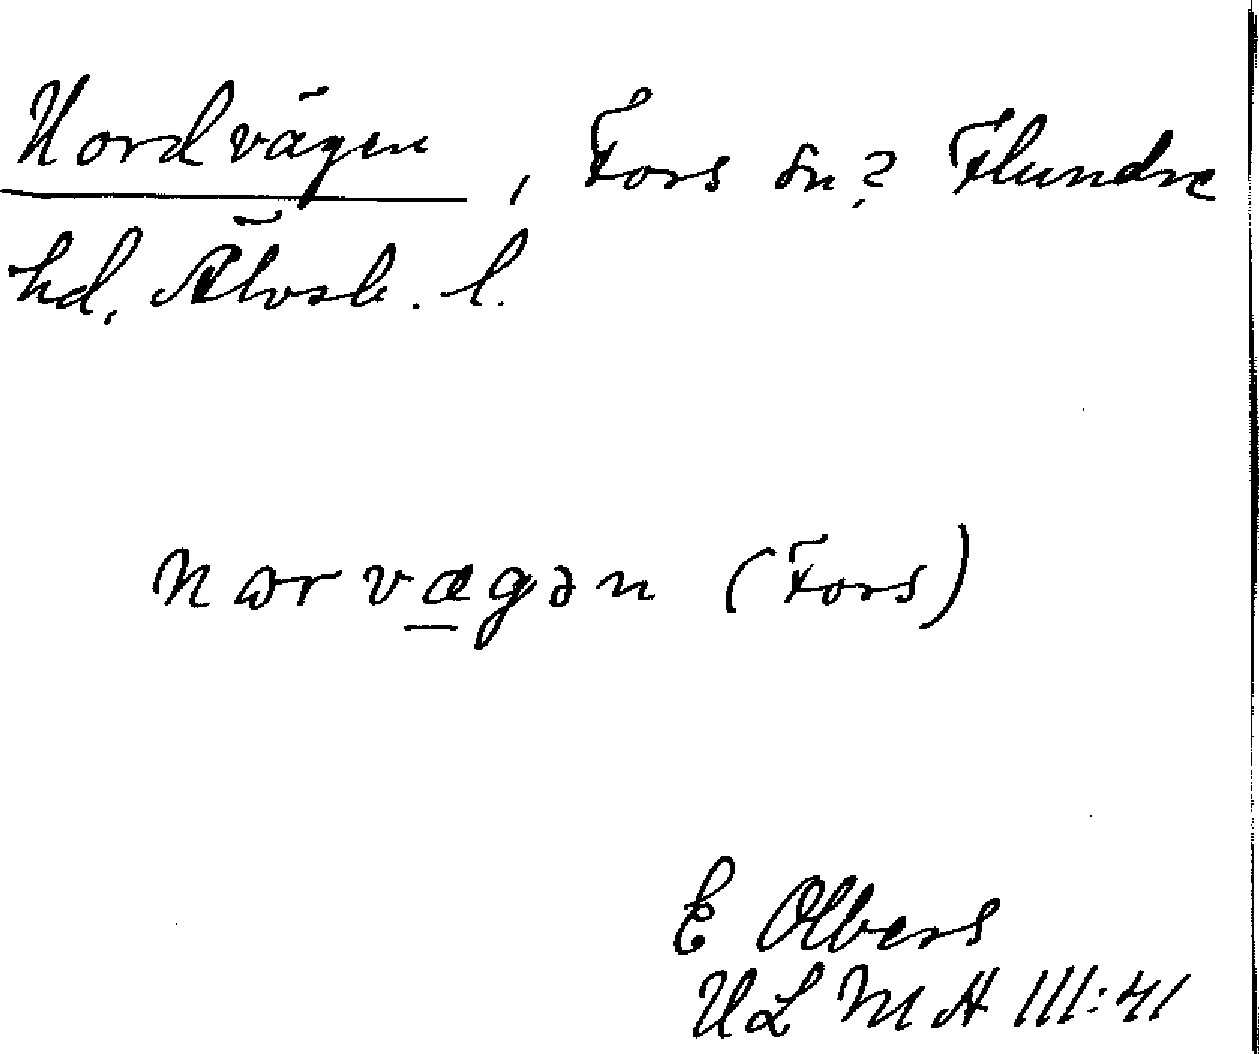 Nordvägen, Fors sn? Flundre
hd, Älvsb. l.
norvægən (Fors)
E Olbers
ULMA 111:41